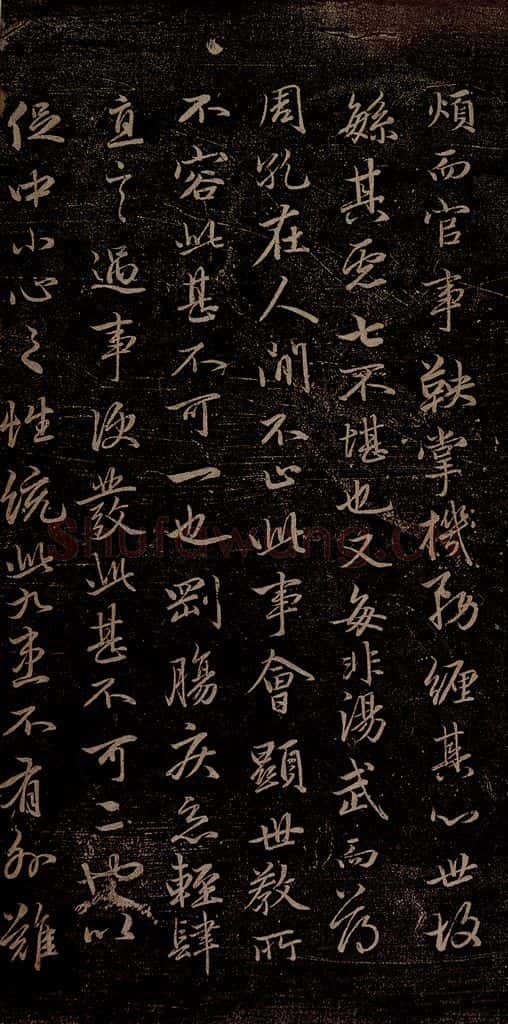 煩而官事鞅掌機務纏其心世故
緐其慮七不堪也又每非湯武而薄
周孔在人間不止此事會顯世教所
不容此甚不可一也剛腸疾惡輕肆
直言遇事便發此甚不可二也以
促中小心之性統此九患不有外難